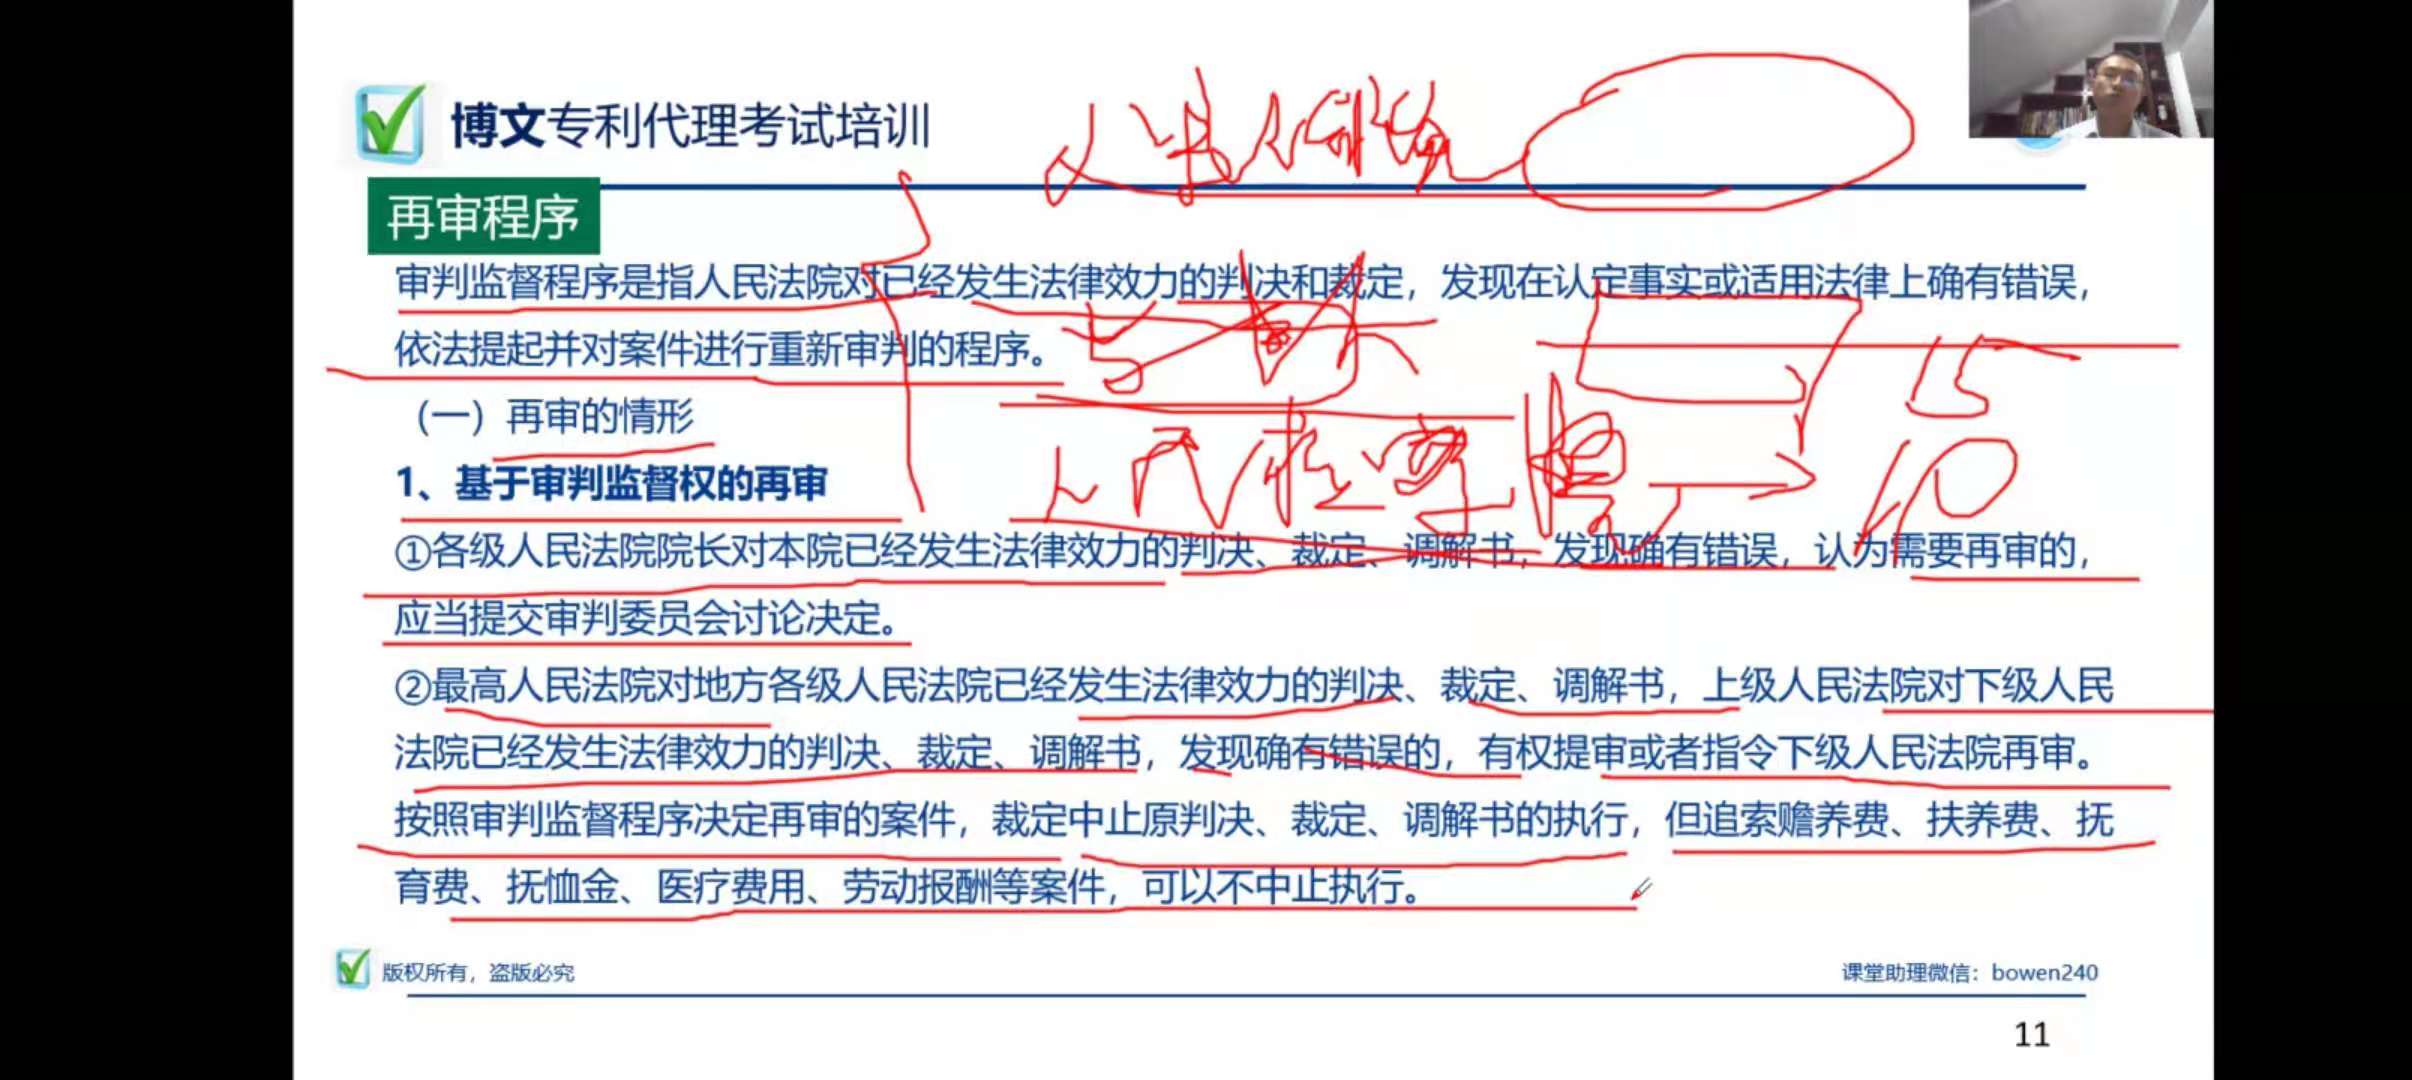 博文专利代理考试培训
再审程序
审判监督程序是指人民法院对已经发生法律效力的判决和裁定，发现在认定事实或适用法律上确有错误，
依法提起并对案件进行重新审判的程序。
（一）再审的情形
1、基于审判监督权的再审
人民检察院
15
10
①各级人民法院院长对本院已经发生法律效力的判决、裁定、调解书，发现确有错误，认为需要再审的，
应当提交审判委员会讨论决定。
②最高人民法院对地方各级人民法院已经发生法律效力的判决、裁定、调解书，上级人民法院对下级人民
法院已经发生法律效力的判决、裁定、调解书，发现确有错误的，有权提审或者指令下级人民法院再审。
按照审判监督程序决定再审的案件，裁定中止原判决、裁定、调解书的执行，但追索赡养费、扶养费、抚
育费、抚恤金、医疗费用、劳动报酬等案件，可以不中止执行。
版权所有，盗版必究
课堂助理微信：bowen240
11